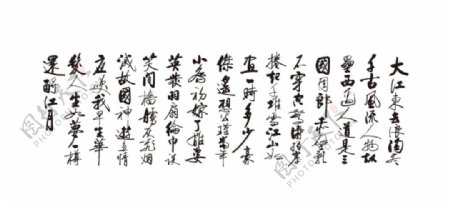 大江東去浪淘盡
千古風流人物故
壘西邊人道是三
國周郎赤壁亂
石穿空驚濤拍岸
捲起千堆雪江山如
畫一時多少豪
傑遙想公瑾當年
小喬初嫁了雄姿
英發羽扇綸巾談
笑間檣艣灰飛烟
滅故國神遊多情
應笑我早生華
髮人生如夢一樽
還酹江月